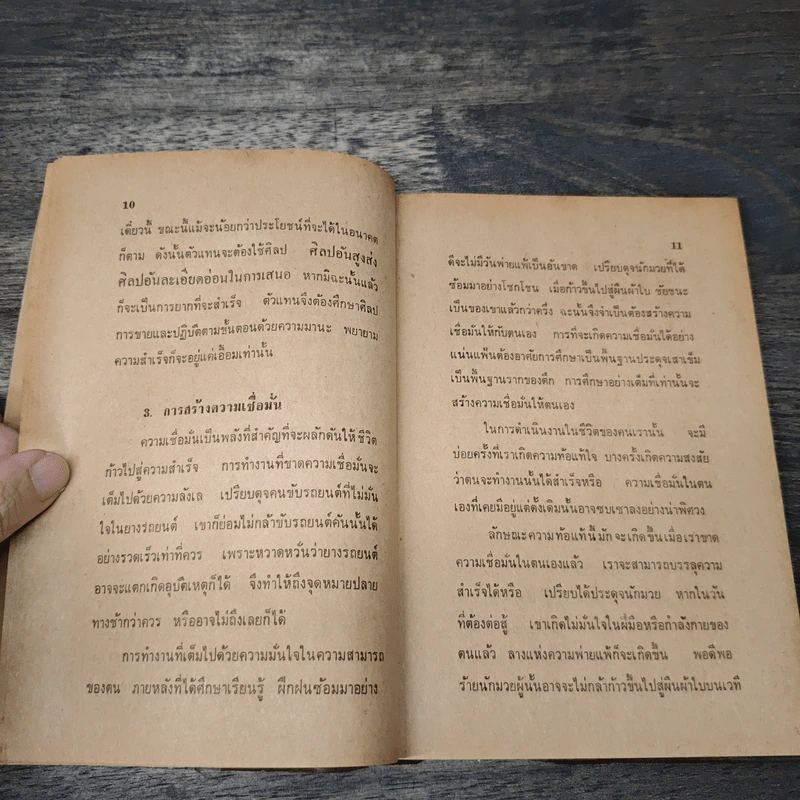 10
เดี๋ยวนี้ ขณะนี้แม้จะน้อยกว่าประโยชน์ที่จะได้ในอนาคต
ก็ตาม ดังนั้นตัวแทนจะต้องใช้ศิลป ศิลปอันสูงส่ง
ศิลปอันละเอียดอ่อนในการเสนอ หากมิฉะนั้นแล้ว
ก็จะเป็นการยากที่จะสำเร็จ ตัวแทนจึงต้องศึกษาศิลป
การขายและปฏิบัติตามขั้นตอนด้วยความมานะ พยายาม
ความสำเร็จก็จะอยู่แค่เอื้อมเท่านั้น
3. การสร้างความเชื่อมั่น
ความเชื่อมั่นเป็นพลังที่สำคัญที่จะผลักดันให้ชีวิต
ก้าวไปสู่ความสำเร็จ การทำงานที่ขาดความเชื่อมั่นจะ
เต็มไปด้วยความลังเล เปรียบดุจคนขับรถยนต์ที่ไม่มั่น
ใจในยางรถยนต์ เขาก็ย่อมไม่กล้าขับรถยนต์คันนั้นได้
อย่างรวดเร็วเท่าที่ควร เพราะหวาดหวั่นว่ายางรถยนต์
อาจจะแตกเกิดอุบัติเหตุก็ได้ จึงทำให้ถึงจุดหมายปลาย
ทางช้ากว่าควร หรืออาจไม่ถึงเลยก็ได้
การทำงานที่เต็มไปด้วยความมั่นใจในความสามารถ
ของตน ภายหลังที่ได้ศึกษาเรียนรู้ ฝึกฝนซ้อมมาอย่าง
11
ดีจะไม่มีวันพ่ายแพ้เป็นอันขาด เปรียบดุจนักมวยที่ได้
ซ้อมมาอย่างโชกโชน เมื่อก้าวขึ้นไปสู่ผืนผ้าใบ ชัยชนะ
เป็นของเขาแล้วกว่าครึ่ง ฉะนั้นจึงจำเป็นต้องสร้างความ
เชื่อมั่นให้กับตนเอง การที่จะเกิดความเชื่อมั่นได้อย่าง
แน่นแฟ้นต้องอาศัยการศึกษาเป็นพื้นฐานประดุจเสาเข็ม
เป็นพื้นฐานรากของตึก การศึกษาอย่างเต็มที่เท่านั้นจะ
สร้างความเชื่อมั่นให้ตนเอง
ในการดำเนินงานในชีวิตของคนเรานั้น จะมี
บ่อยครั้งที่เราเกิดความท้อแท้ใจ บางครั้งเกิดความสงสัย
ว่าตนจะทำงานนั้นได้สำเร็จหรือ ความเชื่อมั่นในตน
เองที่เคยมีอยู่แต่ดั้งเดิมนั้นอาจซบเซาลงอย่างน่าพิศวง
ลักษณะความท้อแท้นี้มักจะเกิดขึ้นเมื่อเราขาด
ความเชื่อมั่นในตนเองแล้ว เราจะสามารถบรรลุความ
สำเร็จได้หรือ เปรียบได้ประดุจนักมวย หากในวัน
ที่ต้องต่อสู้ เขาเกิดไม่มั่นใจในฝีมือหรือกำลังกายของ
ตนแล้ว ลางแห่งความพ่ายแพ้ก็จะเกิดขึ้น พอดีพอ
ร้ายนักมวยผู้นั้นอาจจะไม่กล้าก้าวขึ้นไปสู่ผืนผ้าใบบนเวที